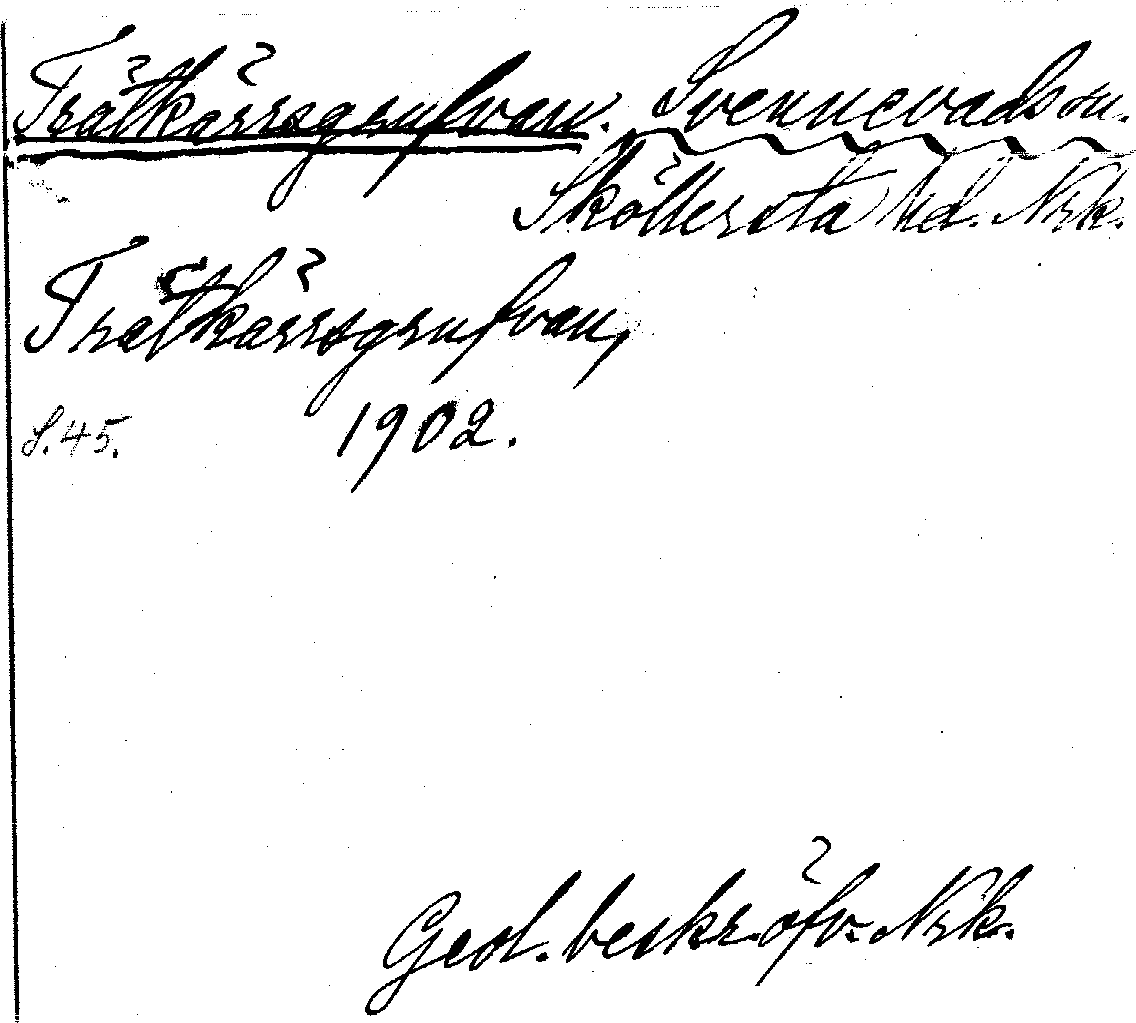 Trätkärrsgrufvan. Svennevads sn.
Sköllersta hd. Nrk.
Trätkärrsgrufvan,
S. 45. 1902.
Geol. beskr. öfv. Nrk.